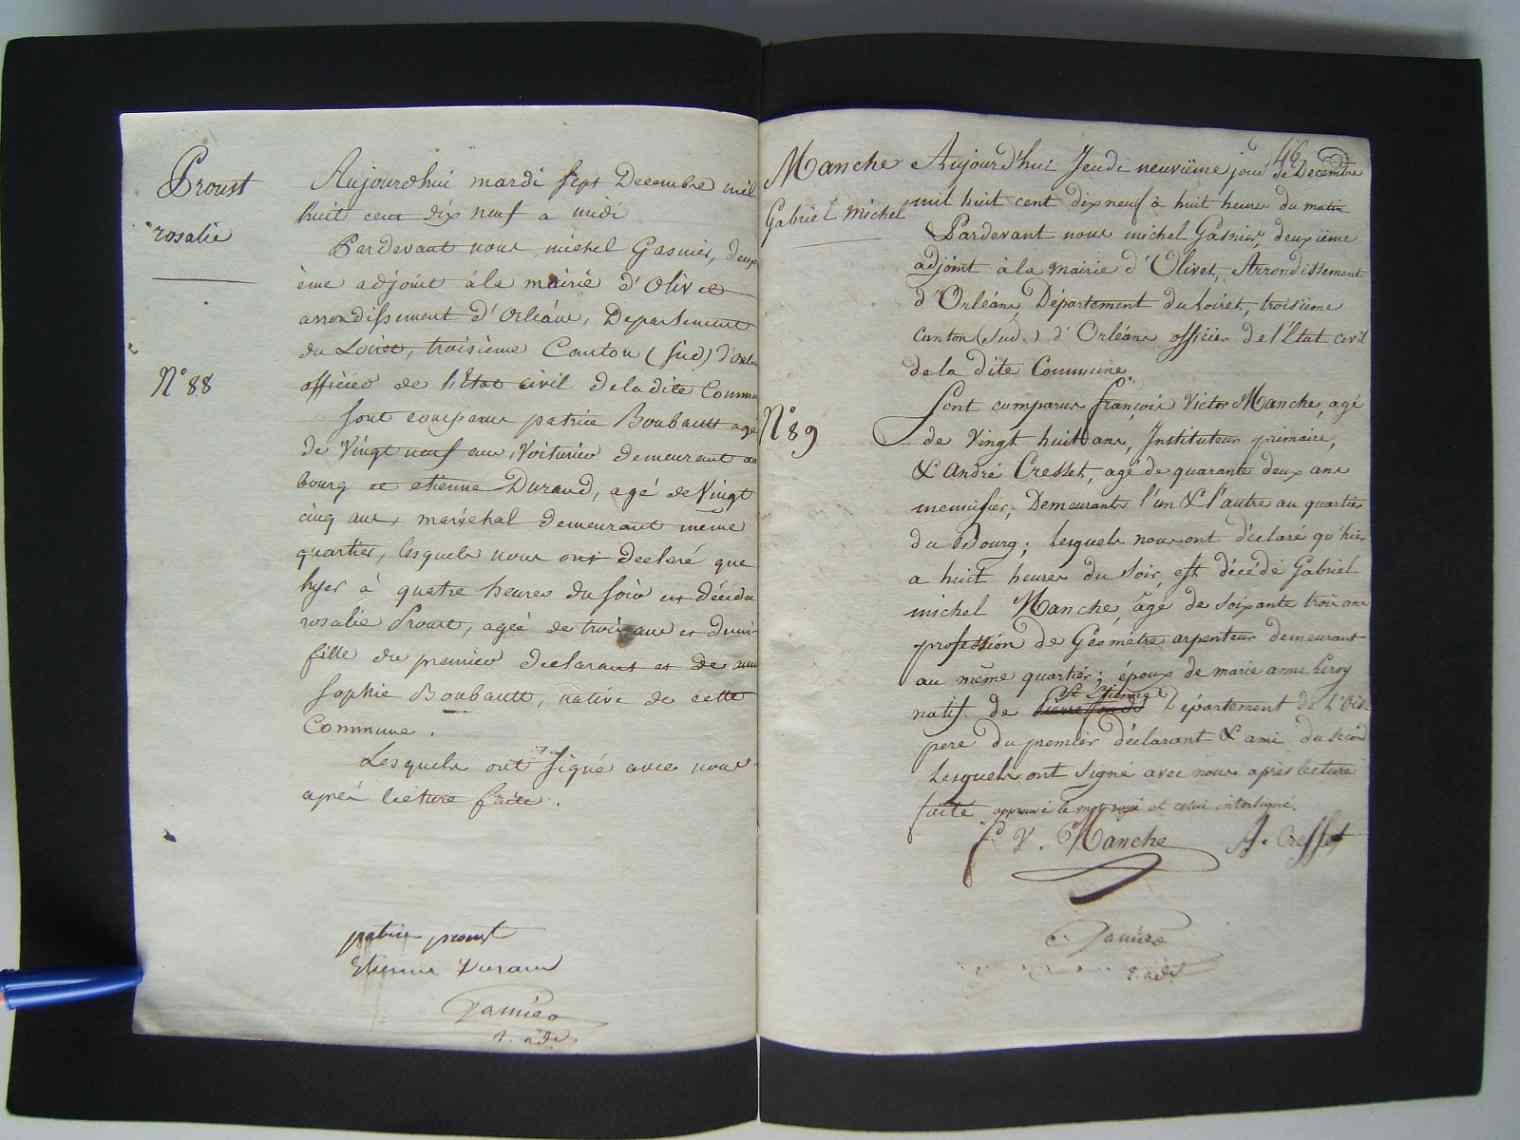 Proust
rosalie
N° 88
Aujourdhui mardi sept Decembre mil
huit cent dix neuf a midi
Pardevant nous michel Gasnier, deux
ème adjoint à la mairie d'Olivet
arrondissement d'Orléans, Departement
du Loiret, troisième Canton (sud) d'orléans
officier de l'Etat civil de la dite Commune
sont comparus patrice Boubault agé
de Vingt neuf ans, Voiturier demeurant au
bourg et etienne Durand, agé de Vingt
cinq ans, maréchal demeurant même
quartier, lesquels nous ont declaré que
hyer à quatre heures du soir est décédée
rosalie Proust, agée de trois ans et demi
fille du premier declarant et de
sophie Boubault, native de cette
Commune.
Lesquels ont signé avec nous
après lecture faite.
patrice proust
Etienne Durand
Gasnier
2. adj.
46
Manche
Gabriel Michel
N° 89
Aujourd'hui Jeudi neuvième jour de Decembre
mil huit cent dix neuf à huit heures du matin
Pardevant nous michel Gasnier, deuxième
adjoint à la mairie d'Olivet, Arrondissement
d'Orléans, Département du Loiret, troisième
Canton (Sud.) d'Orléans officier de l'Etat civil
de la dite Commune.
Sont comparus françois Victor Manche, agé
de vingt huit ans, Instituteur primaire,
& André Cresset, agé de quarante deux ans
menuisier, Demeurants l'un & l'autre au quartier
du Bourg; lesquels nous ont déclaré qu'hier
a huit heures du soir, est décédé Gabriel
michel Manche, âgé de soixante trois ans
profession de Géomètre arpenteur demeurant
au même quartier; époux de marie anne Leroy
St Etienne
natif de Département de L'Oise
pere du premier déclarant & ami du second
Lesquels ont signé avec nous après lecture
faite approuvé le mot rayé et celui interligné.
f. V. Manche A. Cresset
Gasnier
2. adj.